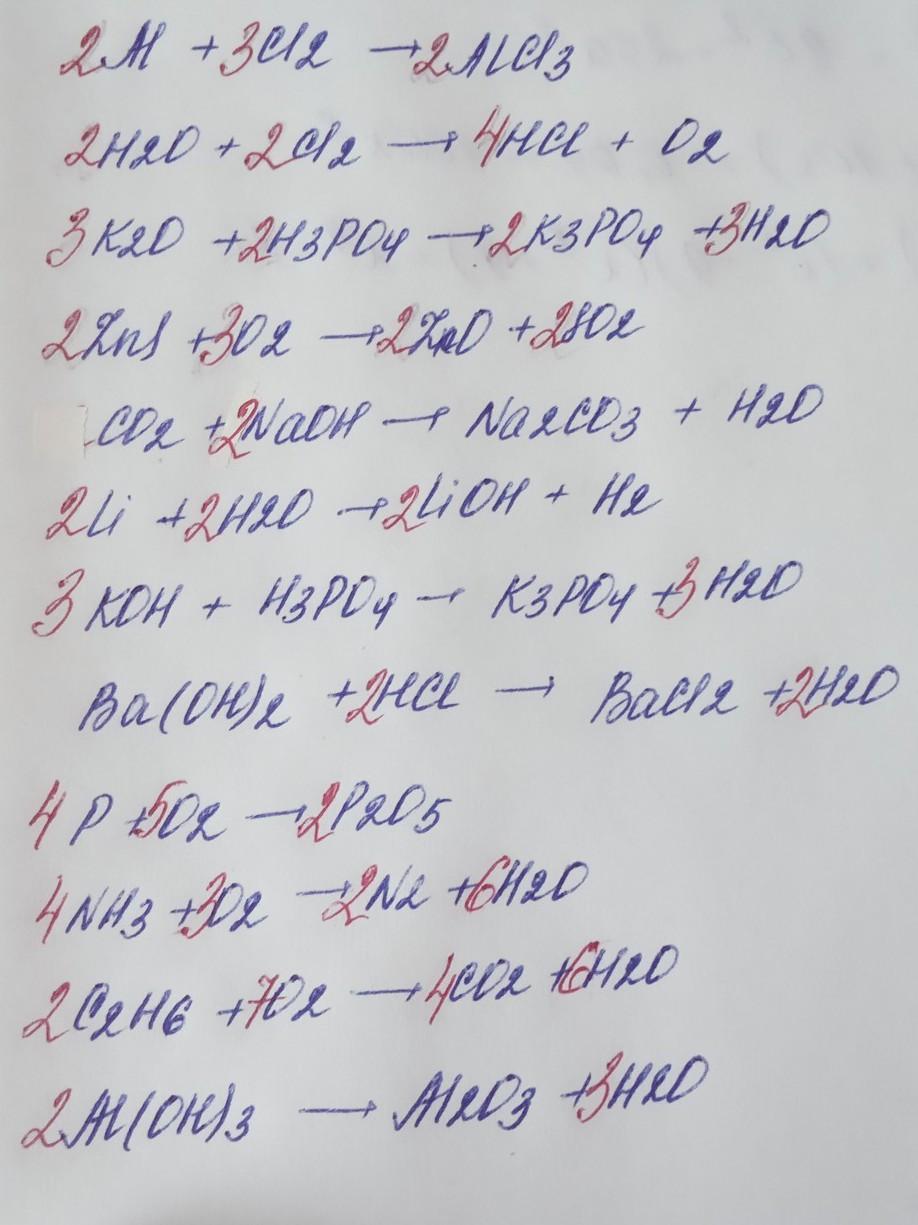 2Al + 3Cl2 → 2AlCl3
2H2O + 2Cl2 → 4HCl + O2
3K2O + 2H3PO4 → 2K3PO4 + 3H2O
2ZnS + 3O2 → 2ZnO + 2SO2
CO2 + 2NaOH → Na2CO3 + H2O
2Li + 2H2O → 2LiOH + H2
3KOH + H3PO4 → K3PO4 + 3H2O
Ba(OH)2 + 2HCl → BaCl2 + 2H2O
4P + 5O2 → 2P2O5
4NH3 + 3O2 → 2N2 + 6H2O
2C2H6 + 7O2 → 4CO2 + 6H2O
2Al(OH)3 → Al2O3 + 3H2O